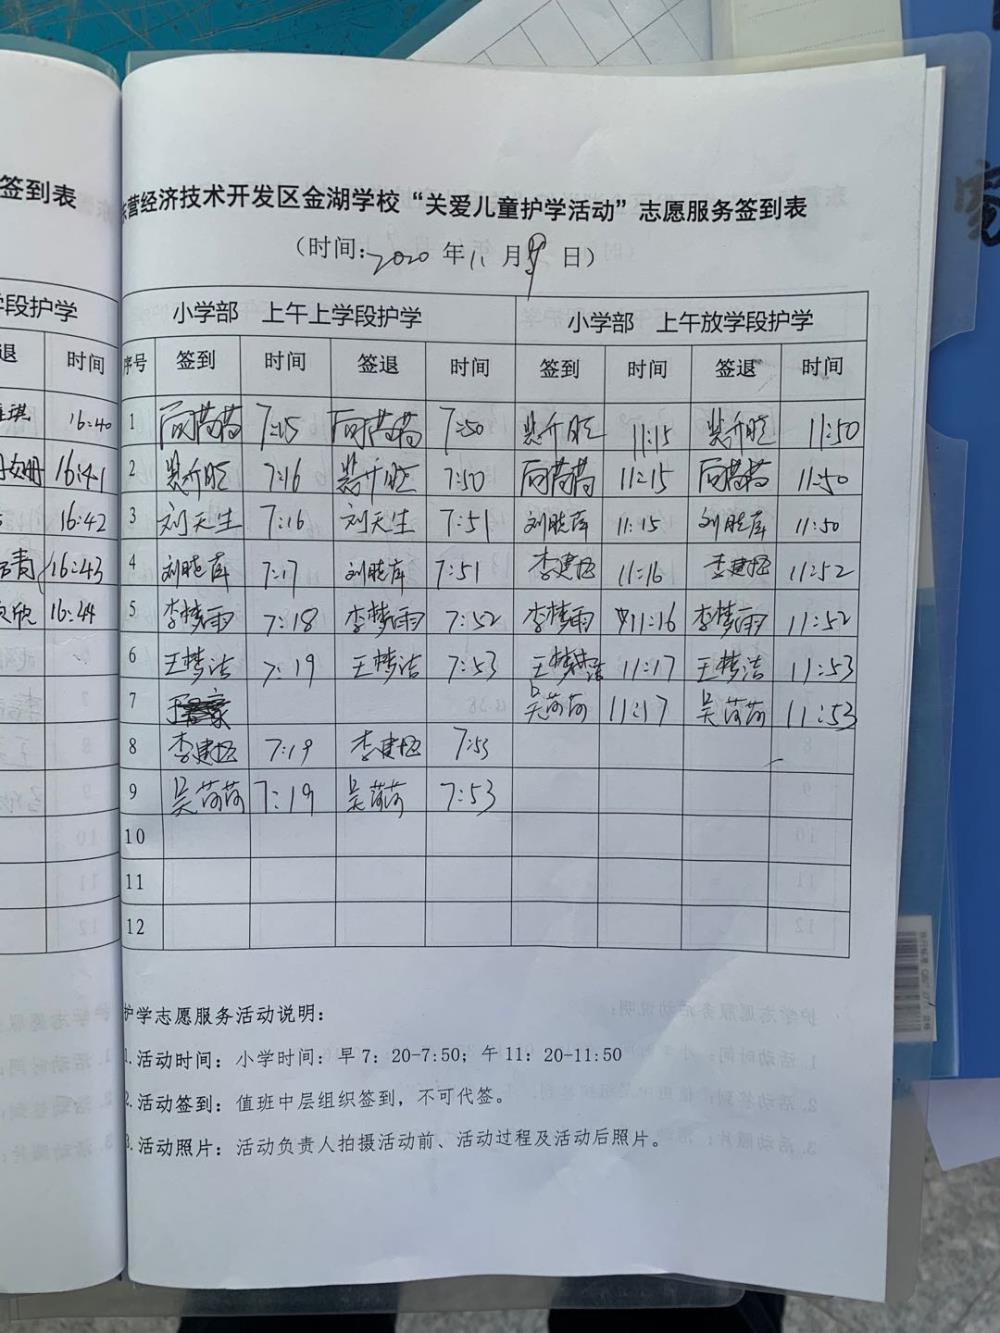 签到表
东营经济技术开发区金湖学校“关爱儿童护学活动”志愿服务签到表
(时间:2020 年 11 月 9 日)
学段护学
小学部 上午上学段护学 小学部 上午放学段护学
退 时间
序号 签到 时间 签退 时间 签到 时间 签退 时间
琪 16:40
1 7:15 7:50 11:15 11:50
16:41
2 7:16 7:50 11:15 11:50
16:42
3 刘天生 7:16 刘天生 7:51 刘晓库 11:15 刘晓库 11:50
青 16:43
4 刘晓库 7:17 刘晓库 7:51 李建 11:16 李建 11:52
欣 16:44
5 李梦雨 7:18 李梦雨 7:52 李梦雨 11:16 李梦雨 11:52
6 王梦洁 7:19 王梦洁 7:53 王梦洁 11:17 王梦洁 11:53
7 吴荷荷 11:17 吴荷荷 11:53
8 李建 7:19 李建 7:53
9 吴荷荷 7:19 吴荷荷 7:53
10
11
12
护学志愿服务活动说明:
1.活动时间: 小学时间: 早7: 20-7:50; 午11: 20-11:50
2.活动签到: 值班中层组织签到, 不可代签。
3.活动照片: 活动负责人拍摄活动前、活动过程及活动后照片。